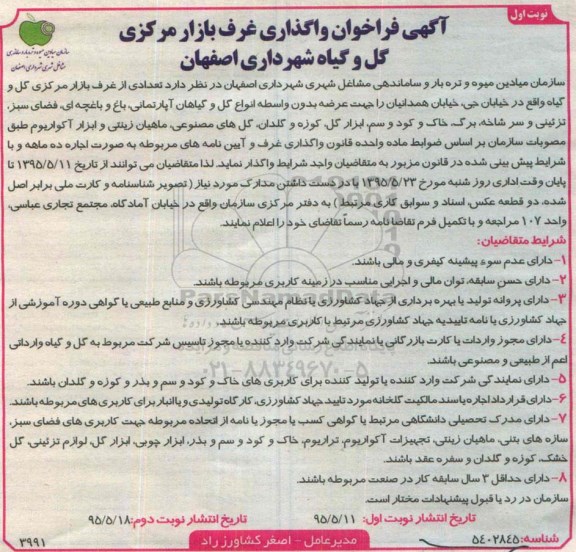 نوبت اول
آگهی فراخوان واگذاری غرف بازار مرکزی
گل و گیاه شهرداری اصفهان
سازمان میادین میوه و تره بار و ساماندهی
مشاغل شهری شهرداری اصفهان
سازمان میادین میوه و تره بار و ساماندهی مشاغل شهری شهرداری اصفهان در نظر دارد تعدادی از غرف بازار مرکزی گل و
گیاه واقع در خیابان جی، خیابان همدانیان را جهت عرضه بدون واسطه انواع گل و گیاهان آپارتمانی، باغ و باغچه ای، فضای سبز،
تزئینی و سر شاخه، برگ، خاک و کود و سم، ابزار گل، کوزه و گلدان، گل های مصنوعی، ماهیان زینتی و ابزار آکواریوم طبق
مصوبات سازمان بر اساس ضوابط ماده واحده قانون واگذاری غرف و آیین نامه های مربوطه به صورت اجاره ده ماهه و با
شرایط پیش بینی شده در قانون مزبور به متقاضیان واجد شرایط واگذار نماید. لذا متقاضیان می توانند از تاریخ ۱۳۹۵/۵/۱۱ تا
پایان وقت اداری روز شنبه مورخ ۱۳۹۵/۵/۲۳ با در دست داشتن مدارک مورد نیاز ( تصویر شناسنامه و کارت ملی برابر اصل
شده، دو قطعه عکس، اسناد و سوابق کاری مرتبط ) به دفتر مرکزی سازمان واقع در خیابان آمادگاه، مجتمع تجاری عباسی،
واحد ۱۰۷ مراجعه و با تکمیل فرم تقاضانامه رسماً تقاضای خود را اعلام نمایند.
شرایط متقاضیان:
۱- دارای عدم سوء پیشینه کیفری و مالی باشند.
۲- دارای حسن سابقه، توان مالی و اجرایی مناسب در زمینه کاربری مربوطه باشند.
۳- دارای پروانه تولید یا بهره برداری از جهاد کشاورزی یا نظام مهندسی کشاورزی و منابع طبیعی یا گواهی دوره آموزشی از
جهاد کشاورزی یا نامه تاییدیه جهاد کشاورزی مرتبط با کاربری مربوطه باشند.
۴- دارای مجوز واردات یا کارت بازرگانی یا نمایندگی شرکت وارد کننده یا مجوز تاسیس شرکت مربوط به گل و گیاه وارداتی
اعم از طبیعی و مصنوعی باشند.
۵- دارای نمایندگی شرکت وارد کننده یا تولید کننده برای کاربری های خاک و کود و سم و بذر و کوزه و گلدان باشند.
۶- دارای قرارداد اجاره یا سند مالکیت گلخانه مورد تایید جهاد کشاورزی، کارگاه تولیدی و یا انبار برای کاربری های مربوطه باشند.
۷- دارای مدرک تحصیلی دانشگاهی مرتبط یا گواهی کسب یا مجوز یا نامه از اتحاده مربوطه جهت کاربری های فضای سبز،
سازه های بتنی، ماهیان زینتی، تجهیزات آکواریوم، تراریوم، خاک و کود و سم و بذر، ابزار چوبی، ابزار گل، لوازم تزئینی، گل
خشک، کوزه و گلدان و سفره عقد باشند.
۸- دارای حداقل ۳ سال سابقه کار در صنعت مربوطه باشند.
سازمان در رد یا قبول پیشنهادات مختار است.
تاریخ انتشار نوبت اول: ۹۵/۵/۱۱ تاریخ انتشار نوبت دوم: ۹۵/۵/۱۸
شناسه: ۵۴۰۲۸۴۵
مدیرعامل - اصغر کشاورز راد
۳۹۹۱
۰۲۱-۸۸۳۴۹۶۷۰-۵